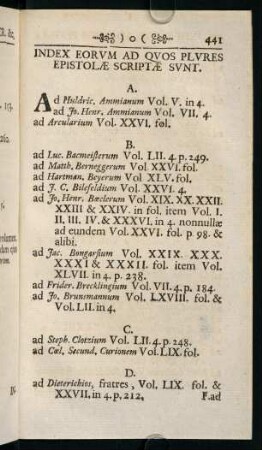 ) o (
441
INDEX EORVM AD QVOS PLVRES
EPISTOLÆ SCRIPTÆ SVNT.
A.
Ad Phildric. Ammianum Vol. V. in 4.
ad Jo. Henr. Ammianum Vol. VII. 4.
ad Arcularium Vol. XXVI. fol.
B.
ad Luc. Bacmeisterum Vol. LII. 4. p. 249.
ad Matth. Berneggerum Vol. XXVI. fol.
ad Hartman. Beyerum Vol. XLV. fol.
ad J. C. Bilefeldium Vol. XXVI. 4.
ad Jo, Henr. Bœclerum Vol. XIX. XX. XXII.
XXIII & XXIV. in fol. item Vol. I.
II. III. IV. & XXXVI. in 4. nonnullæ
ad eundem Vol. XXVI. fol. p. 98. &
alibi.
ad Jac. Bongarsium Vol. XXIX. XXX.
XXXI & XXXII. fol. item Vol.
XLVII. in 4. p. 238.
ad Frider. Brecklingium Vol. VII. 4. p. 184
ad Jo, Brunsmannum Vol. LXVIII. fol. &
Vol. LII. in 4.
C.
ad Steph. Clotzium Vol. LII. 4. p. 248.
ad Cœl. Secund. Curionem Vol. LIX. fol.
D.
ad Dieterichios, fratres, Vol. LIX. fol. &
XXVII. in 4. p. 212.
F. ad